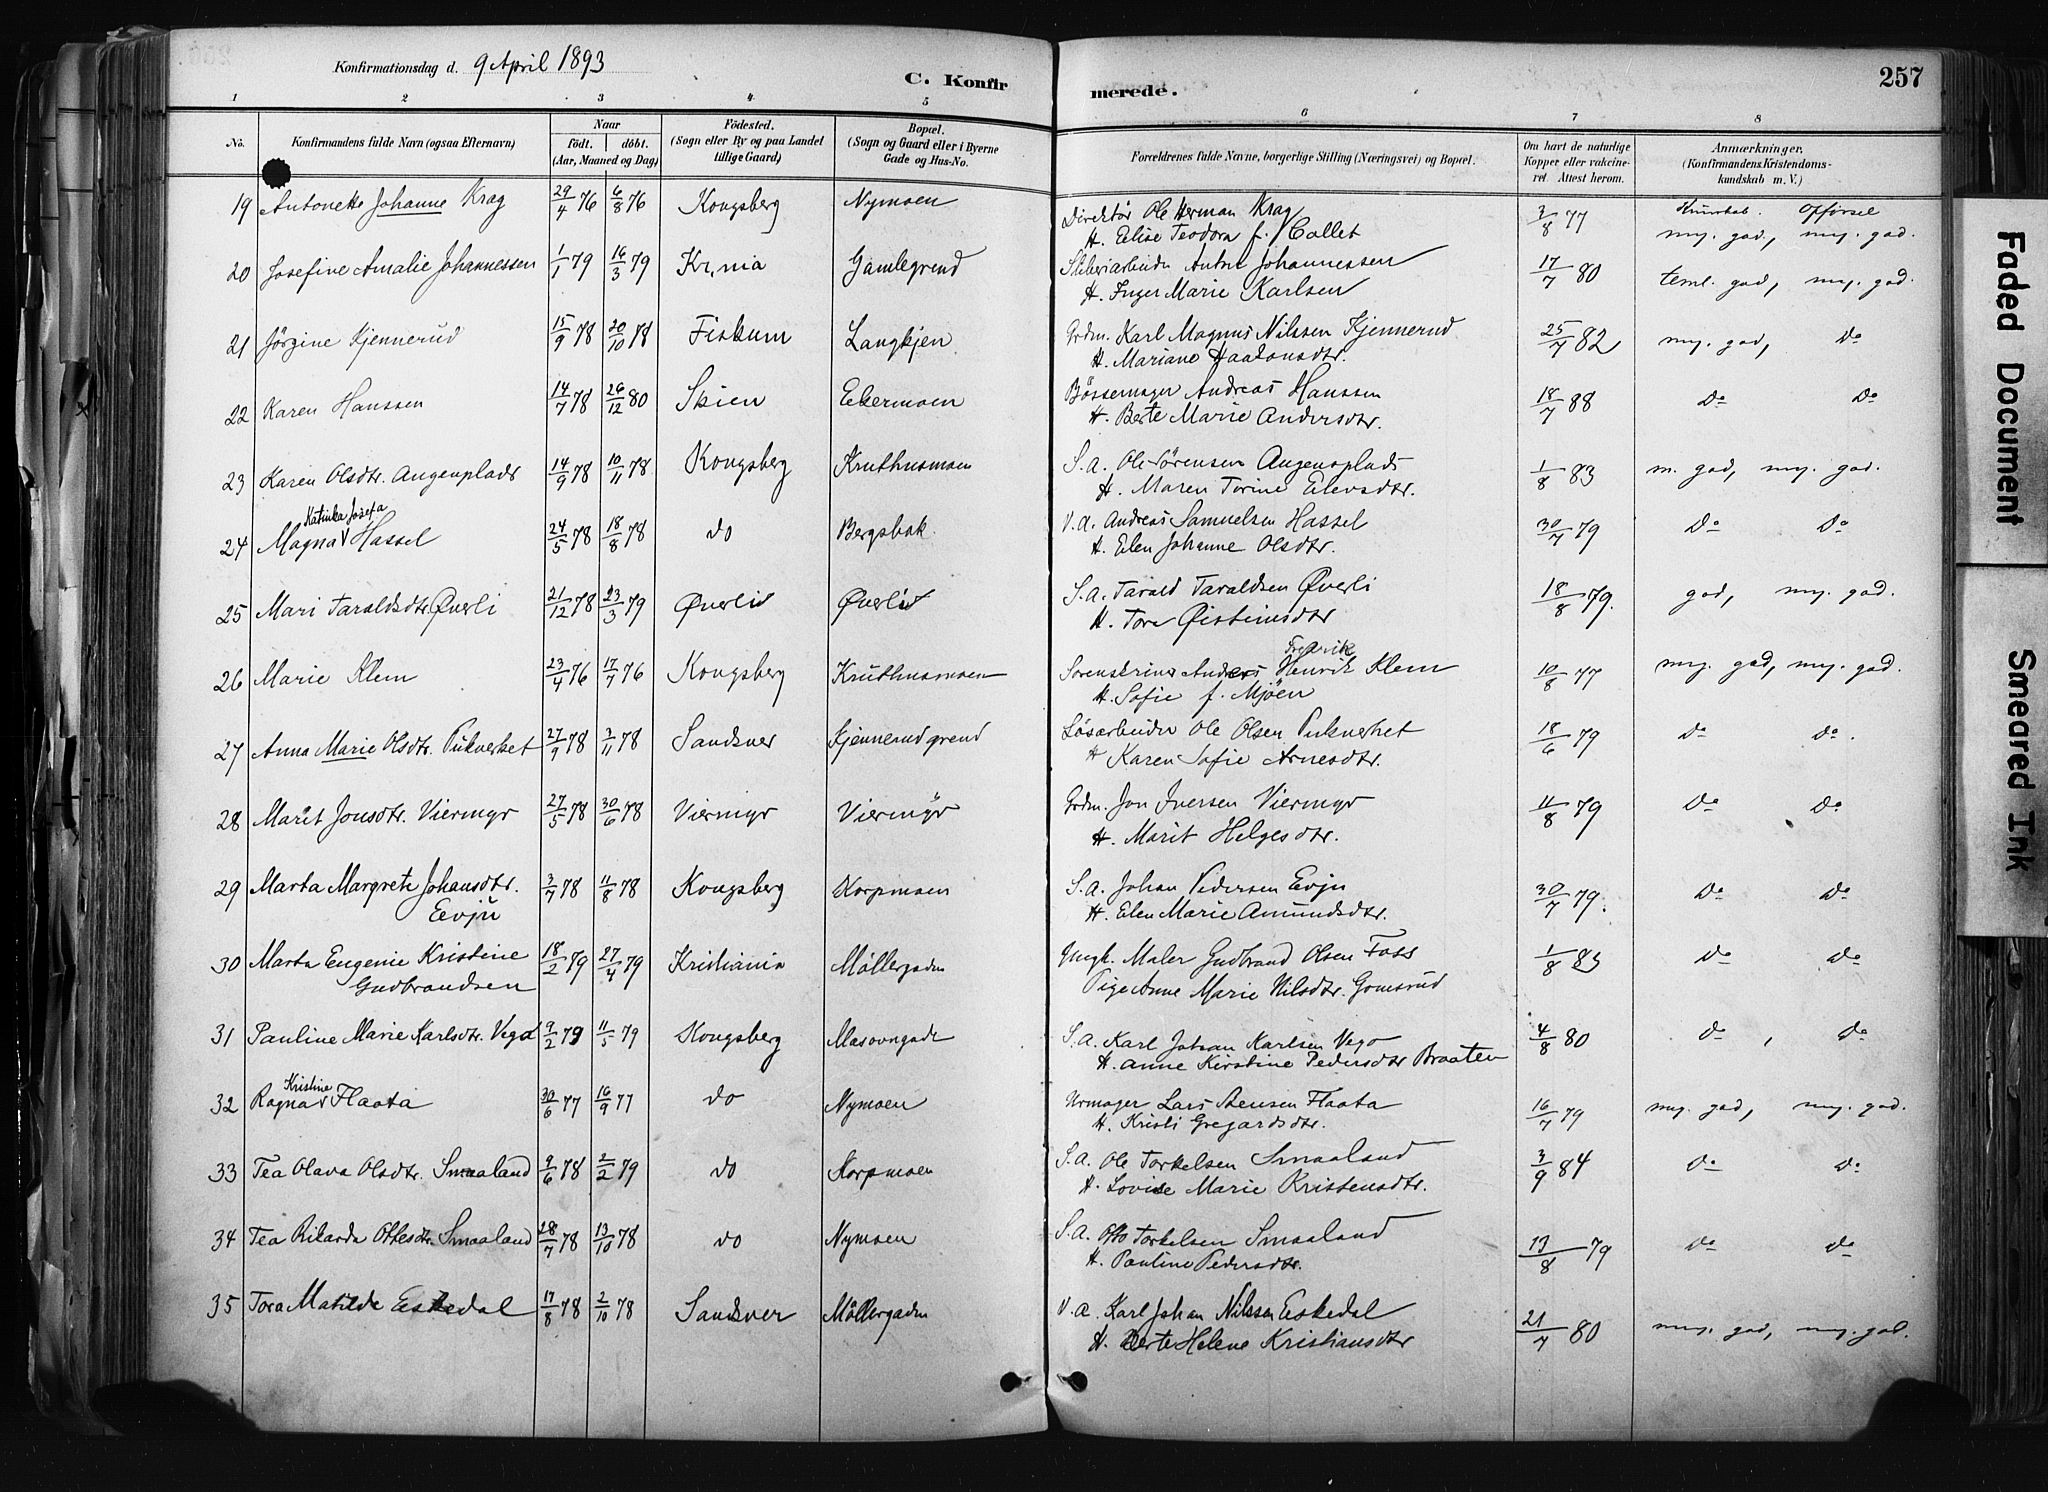 Konfirmationsdag d. 9 April 1893
C. Konfir
merede.
257
1 2 3 4 5 6 7 8
No. Konfirmandens fulde Navn (ogsaa Efternavn) Naar födt. döbt. (Aar, Maaned og Dag) Födested. (Sogn eller By og paa Landet tillige Gaard) Bopæl. (Sogn og Gaard eller i Byerne Gade og Hus-No. Forældrenes fulde Navne, borgerlige Stilling (Næringsvei) og Bopæl. Om havt de naturlige Kopper eller vakcineret. Attest herom. Anmærkninger. (Konfirmandens Kristendomskundskab m. V.)
19 Antonette Johanne Krag 29/4 76 6/8 76 Kongsberg Nymoen Direktör Ole Herman Krag 3/8 77 Kundskab. Opförsel
H. Elise Teodora f. Collet meg. god, meg. god.
20 Josefine Amalie Johannessen 1/1 79 16/3 79 Kr.nia Gamlegrend Sliberiarbeider Anton Johannessen 17/7 80 teml. god, meg. god.
H. Inger Marie Karlsen
21 Jörgine Kjennerud 15/9 78 20/10 78 Fiskum Langkjen Grdm. Karl Magnus Nilssen Kjennerud 25/7 82 meg. god, Do
H. Mariane Haakonsdtr.
22 Karen Hanssen 14/7 78 26/12 80 Skien Ekermoen Bössemager Andreas Hanssen 18/7 88 Do Do
H. Berte Marie Andersdtr.
23 Karen Olsdtr. Angenplads 14/9 78 10/11 78 Kongsberg Kruthusmoen S.a. Ole Sörensen Angensplads 1/8 83 m. god, meg. god.
H. Maren Torine Elevsdtr.
Katinka Josefa
24 Magna V Hassel 24/5 78 18/8 78 do Bergsbak. V.a. Andreas Samuelsen Hassel 30/7 79 Do Do
H. Elen Johanne Olsdtr.
25 Mari Taraldsdtr. Øverli 21/12 78 23/3 79 Øverlid Øverlid S.a. Tarald Taraldsen Øverli 18/8 79. god, meg. god.
H. Tore Øisteinsdtr
Fredrik
26 Marie Klem 23/4 76 17/7 76 Kongsberg Kruthusmoen Sorenskriver Anders Henrik Klem 10/8 77 meg. god, meg. god.
H. Sofie f. Mjöen
27 Anna Marie Olsdtr. Pukverket 27/9 78 3/11 78 Sandsver Kjennerudgrend Lösarbeider Ole Olsen Pukverket 18/6 79 Do Do.
H Karen Sofie Arnesdtr.
28 Marit Jonsdtr. Viermyr 27/5 78 30/6 78 Viermyr Viermyr Grdm. Jon Iversen Viermyr 11/8 79 Do Do
H. Marit Helgesdtr.
29 Marta Margrete Johansdtr. 3/7 78 11/8 78 Kongsberg Korpmoen S.a. Johan Pedersen Evju 30/7 79. Do Do
Eevju H. Elen Marie Amundsdtr.
30 Marta Eugenie Kristine 18/2 79 27/4 79 Kristiania Möllergaden Ungk. Maler Gudbrand Olsen Foss 1/8 83 Do Do
Gudbrandsen Pige Anne Marie Nilsdtr. Gomsrud
31 Pauline Marie Karlsdtr. Vego 9/2 79 11/5 79 Kongsberg Masovngade S.a. Karl Johan Karlsen Vego 4/8 80 Do , Do
H. Anne Kirstine Pedersdtr Braaten
Kristine
32 Ragna V Flaata 30/6 77 16/9 77 do Nymoen Urmager Lars Stensen Flaata 16/7 79 meg. god, meg. god.
H. Kristi Gregardsdtr.
33 Tea Olava Olsdtr. Smaaland 9/6 78 2/2 79 do Korpmoen S.a. Ole Torkelsen Smaaland 3/9 84 Do Do
H. Lovise Marie Kristensdtr.
34 Tea Rikarda Ottesdtr. Smaaland 28/7 78 13/10 78 do Nymoen S.a. Otto Torkelsen Smaaland 13/8 79 Do Do
H. Pauline Pedersdtr.
35 Tora Matilde Eskedal 17/8 78 2/10 78 Sandsver Möllergaden V.a. Karl Johan Nilssen Eskedal 21/7 80 meg. god, meg. god.
H. Berte Helene Kristiansdtr
Faded Document
Smeared Ink